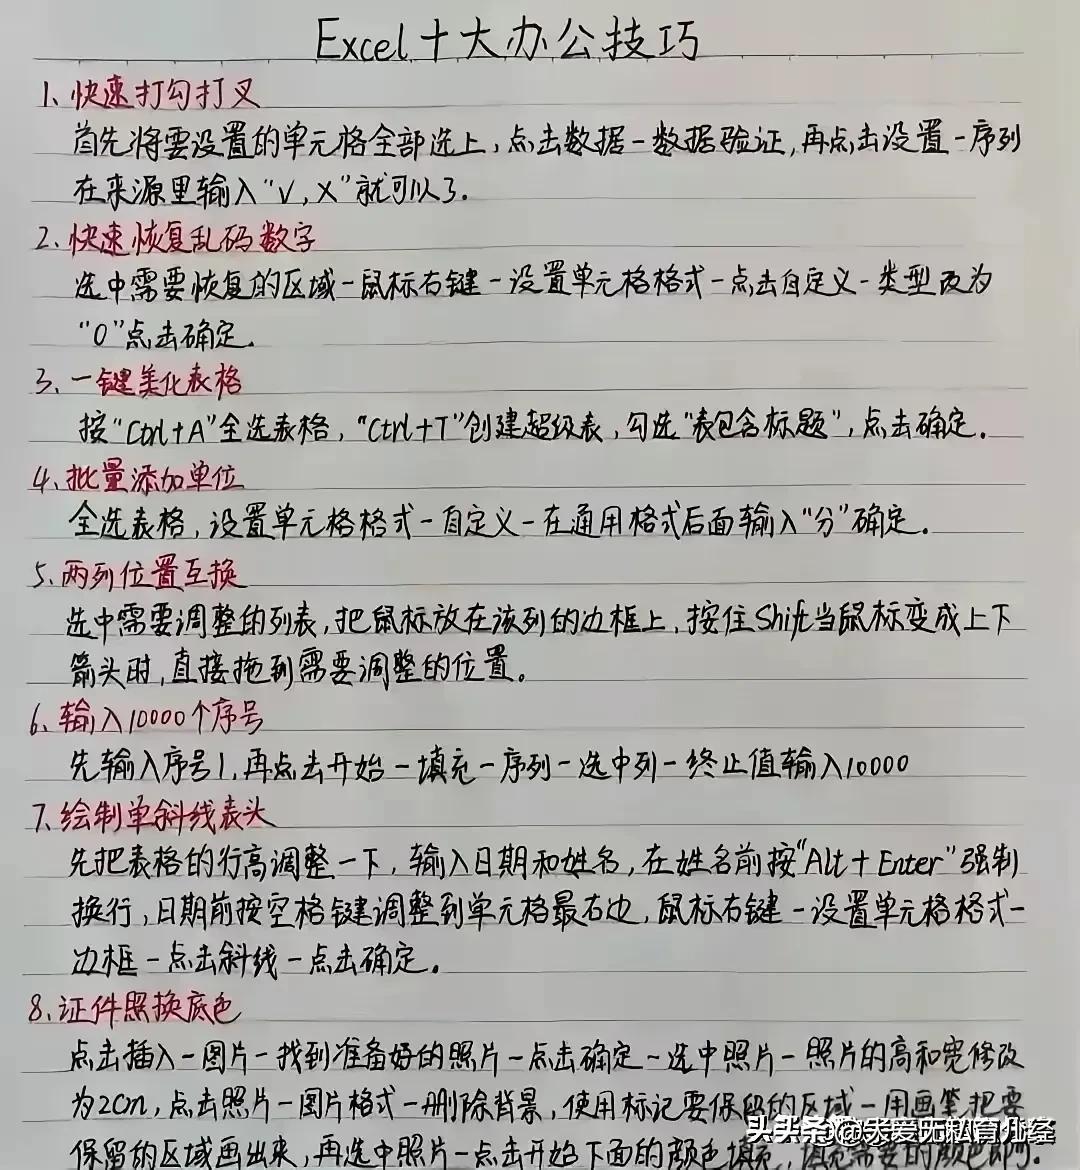 Excel十大办公技巧
1、快速打勾打叉
首先将要设置的单元格全部选上，点击数据-数据验证，再点击设置-序列
在来源里输入“√，X”就可以了。
2、快速恢复乱码数字
选中需要恢复的区域-鼠标右键-设置单元格格式-点击自定义-类型改为
“0”点击确定。
3、一键美化表格
按“Ctrl+A”全选表格，“Ctrl+T”创建超级表，勾选“表包含标题”，点击确定。
4、批量添加单位
全选表格，设置单元格格式-自定义-在通用格式后面输入“分”确定。
5、两列位置互换
选中需要调整的列表，把鼠标放在该列的边框上，按住Shift当鼠标变成上下
箭头时，直接拖到需要调整的位置。
6、输入10000个序号
先输入序号1，再点击开始-填充-序列-选中列-终止值输入10000
7、绘制单斜线表头
先把表格的行高调整一下，输入日期和姓名，在姓名前按“Alt+Enter”强制
换行，日期前按空格键调整到单元格最右边，鼠标右键-设置单元格格式-
边框-点击斜线-点击确定。
8、证件照换底色
点击插入-图片-找到准备好的照片-点击确定-选中照片-照片的高和宽修改
为2cm，点击照片-图片格式-删除背景，使用标记要保留的区域-用画笔把要
保留的区域画出来，再选中照片-点击开始下面的颜色填充，填充需要的颜色即可。
头条@大爱无私育儿经